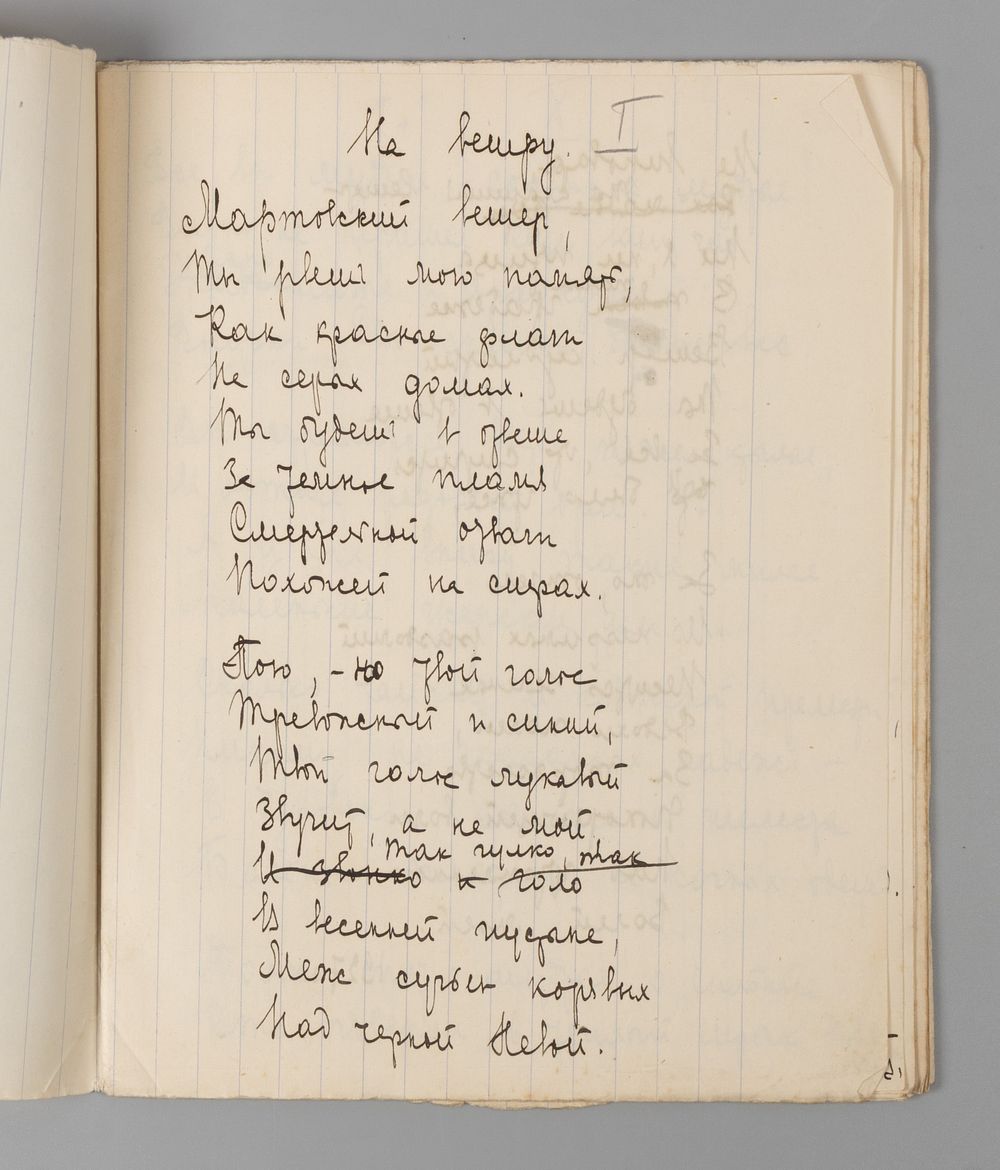 На ветру. I
Мартовский ветер,
Ты рвешь мою память,
Как красные флаги
На серых домах.
Ты будешь в ответе
За темное пламя
Смертельной отваги
Похожей на страх.
Пою, - но твой голос
Тревожный и синий,
Твой голос лукавый
Звучит, а не мой,
Так гулко, так
И звонко и голо
В весенней пустыне,
Меж сучьев корявых
Над черной Невой.